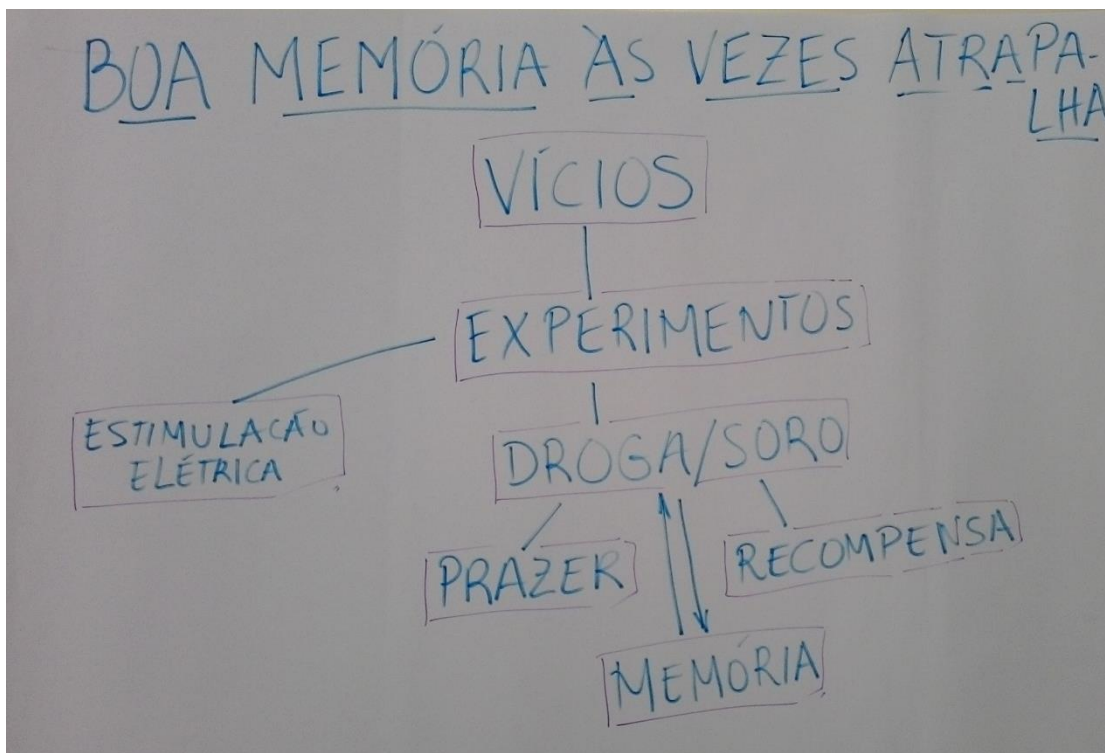 BOA MEMÓRIA ÀS VEZES ATRAPA-
LHA
VÍCIOS
EXPERIMENTOS
ESTIMULACÃO
ELÉTRICA
DROGA/SORO
PRAZER
RECOMPENSA
MEMÓRIA